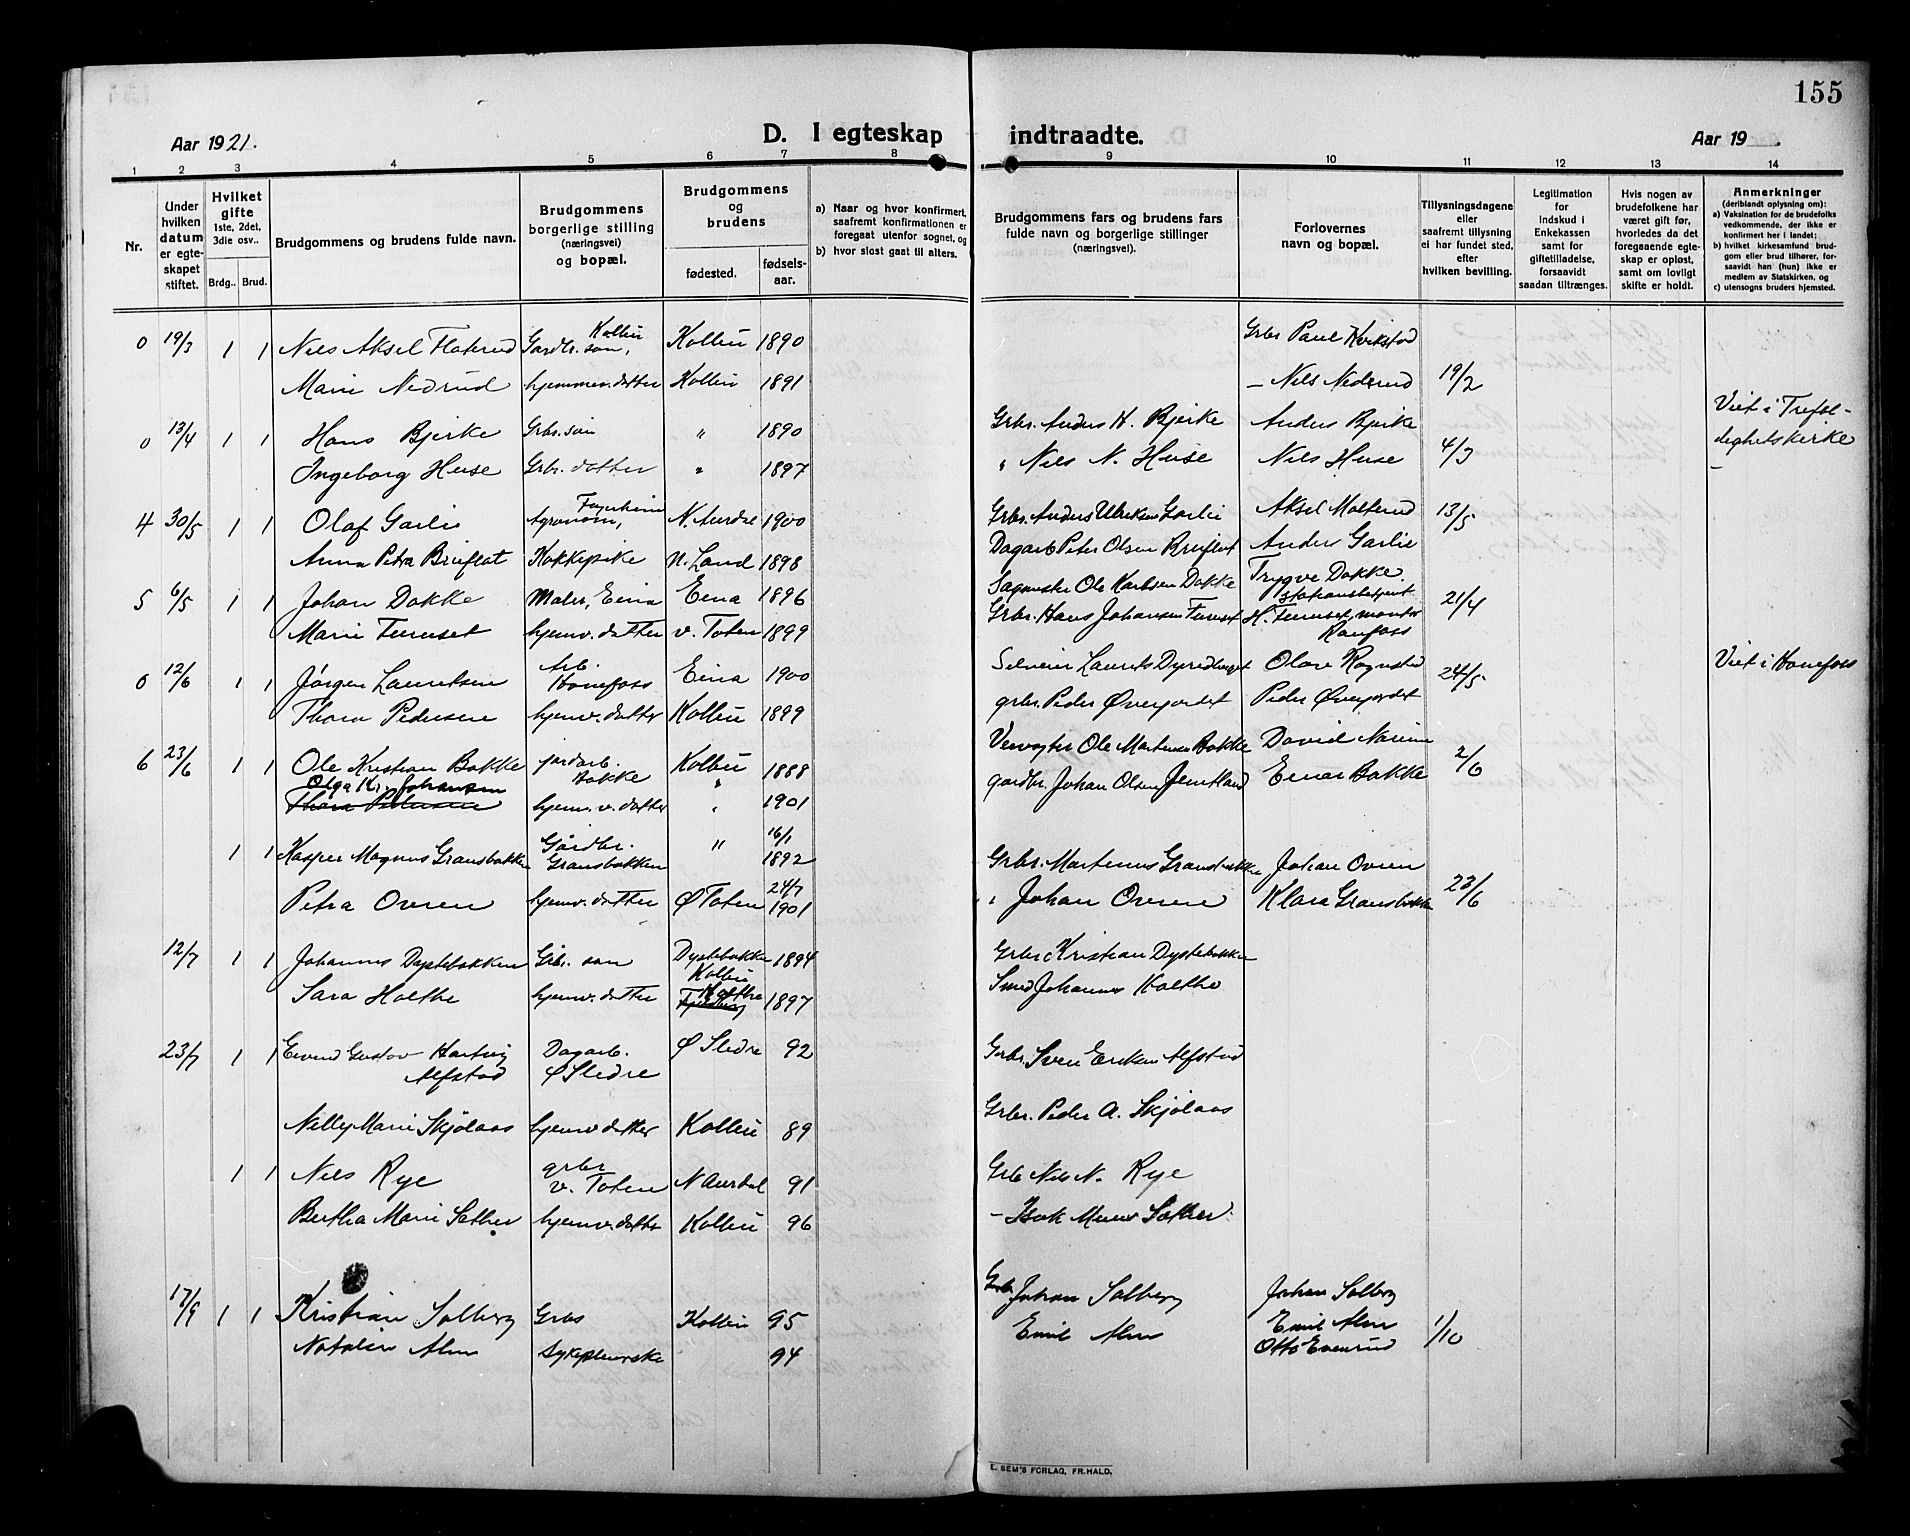 155
Aar 1921.
D. I egteskap indtraadte.
Aar 19 .
1 2 3 4 5 6 7 8 9 10 11 12 13 14
Nr.
Under hvilken datum er egteskapet stiftet.
Hvilket gifte 1ste, 2det, 3die osv..
Brdg.. Brud.
Brudgommens og brudens fulde navn.
Brudgommens borgerlige stilling (næringsvei) og bopæl.
Brudgommens og brudens
fødested.
fødsels-aar.
a) Naar og hvor konfirmert, saafremt konfirmationen er foregaat utenfor sognet, og
b) hvor sidst gaat til alters.
Brudgommens fars og brudens fars fulde navn og borgerlige stillinger (næringsvei)
Forlovernes navn og bopæl.
Tillysningsdagene eller saafremt tillysning ei har fundet sted, efter hvilken bevilling.
Legitimation for indskud i Enkekassen samt for giftetilladelse, forsaavidt saadan tiltrænges.
Hvis nogen av brudefolkene har været gift før, hvorledes da det foregaaende egteskap er opløst, samt om lovlig skifte er holdt.
Anmerkninger (deriblandt oplysning om):
a) Vaksination for de brudefolks vedkommende, der ikke er konfirmert her i landet;
b) hvilket kirkesamfund brudgom eller brud tilhører, forsaavidt han (hun) ikke er medlem av Statskirken, og
c) utensogns bruders hjemsted.
0 19/3 1 1 Nils Aksel Flaterud Gardbr. søn, Kolbu Kolbu 1890 Grbr Paul Kvikstad
Marie Nedrud hjemmev. datter Kolbu 1891 – Nils Nederud 19/2
0 13/4 1 1 Hans Bjerke Grbr. søn " 1890 Grbr. Anders H. Bjerke Anders Bjerke Viet i Trefoldighetskirke
Ingeborg Huse Grbr. datter " 1897 " Nils N. Huse Nils Huse 4/3
4 30/5 1 1 Olaf Garlie Agronom, N. Aurdal 1900 Grbr. Anders Ulriksen Garlie Aksel Molterud 13/5
Anna Petra Bruflat Kokkepike N. Land 1898 Dagarb Peter Olsen Bruflat Anders Garlie
5 6/5 1 1 Johan Dokke Maler, Eina Eina 1896 Ole Karlsen Dokke Trygve Dokke
Marie Furuset hjemv. datter V. Toten 1899 Grbr. Hans Johansen Furuset H. Furuset, montør Raufoss 21/4
0 12/6 1 1 Jørgen Lauritsen Arb. Hønefoss Eina 1900 Selveier Laurits Dyredberget Olave Rognstad 24/5 Viet i Hønefoss
Thora Pedersen hjemv. datter Kolbu 1899 grbr. Peder Øvergordet Peder Øvergordet
6 23/6 1 1 Ole Kristian Bakke jordarb. Bakke Kolbu 1888 Veivogter Ole Martinsen Bakke David Narum 2/6
Olga K. Johansen
Thora Pedersen hjem. v. datter " 1901 gardbr. Johan Olsen Jemtland Einar Bakke
1 1 Kasper Magnus Gransbakken Gårdbr. Gransbakken " 16/1 1892 Grbr. Martinus Gransbakken Johan Ovren
Petra Ovren hjemv. datter Ø Toten 24/7 1901 " Johan Ovren Klara Gransbakken 23/6
12/7 1 1 Johannes Dystebakken Grbr. søn Dystebakken Kolbu 1894 Grbr Kristian Dystebakken
Sara Holthe hjemv. datter Holthe 1897 Smed Johannes Holthe
23/7 1 1 Eivind Gustav Hartvig Alfstad Dagarb. Ø Slidre Ø Slidre 92 Grbr. Sven Eriksen Alfstad
Nilly Marie Skjølaas hjemv datter Kolbu 89 Grbr. Peder A. Skjølaas
1 1 Nils Rye grbr V. Toten N Aurdal 91 Grbr Nils N. Rye
Bertha Marie Sæther hjemv. datter Kolbu 96 – Isak Sæther
17/9 1 1 Kristian Solberg Grbs Kolbu 95 Grbr. Johan Solberg Johan Solberg
Natalie Alm Sykepleierske 94 Emil Alm Emil Alm 1/10
Otto Evenrud
E. SEM'S FORLAG, FR.HALD.